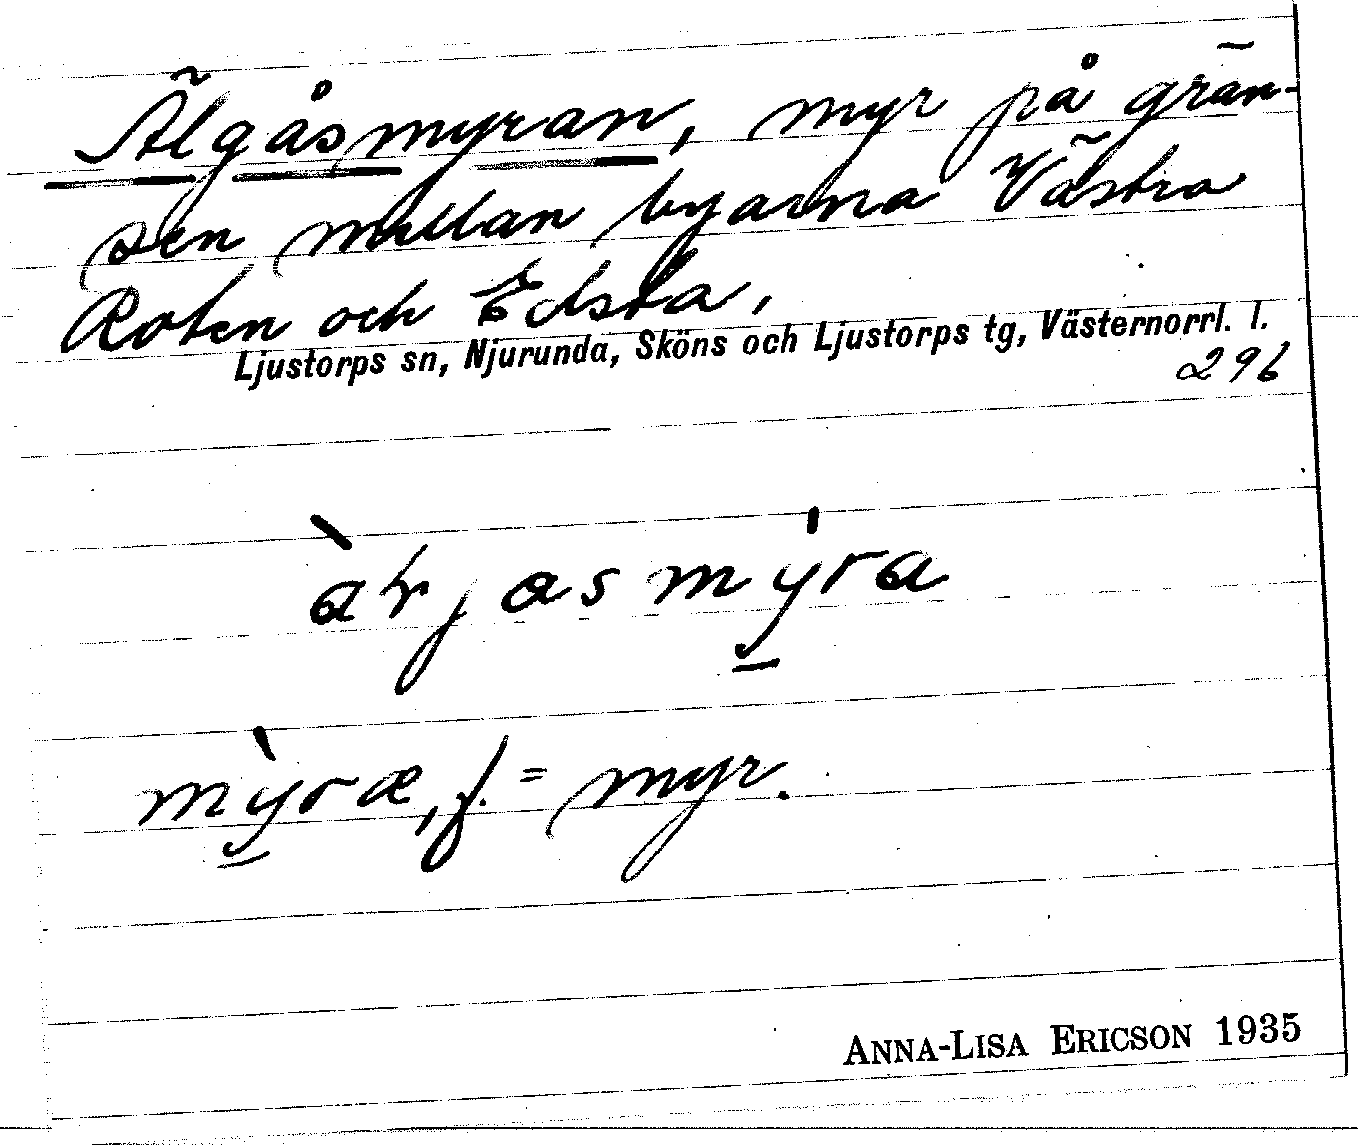 Älgåsmyran, myr på grän-
sen mellan byarna Västra
Roten och Edsta,
Ljustorps sn, Njurunda, Sköns och Ljustorps tg, Västernorrl. l.
296
mỳræ, f. = myr.
ANNA-LISA ERICSON 1935